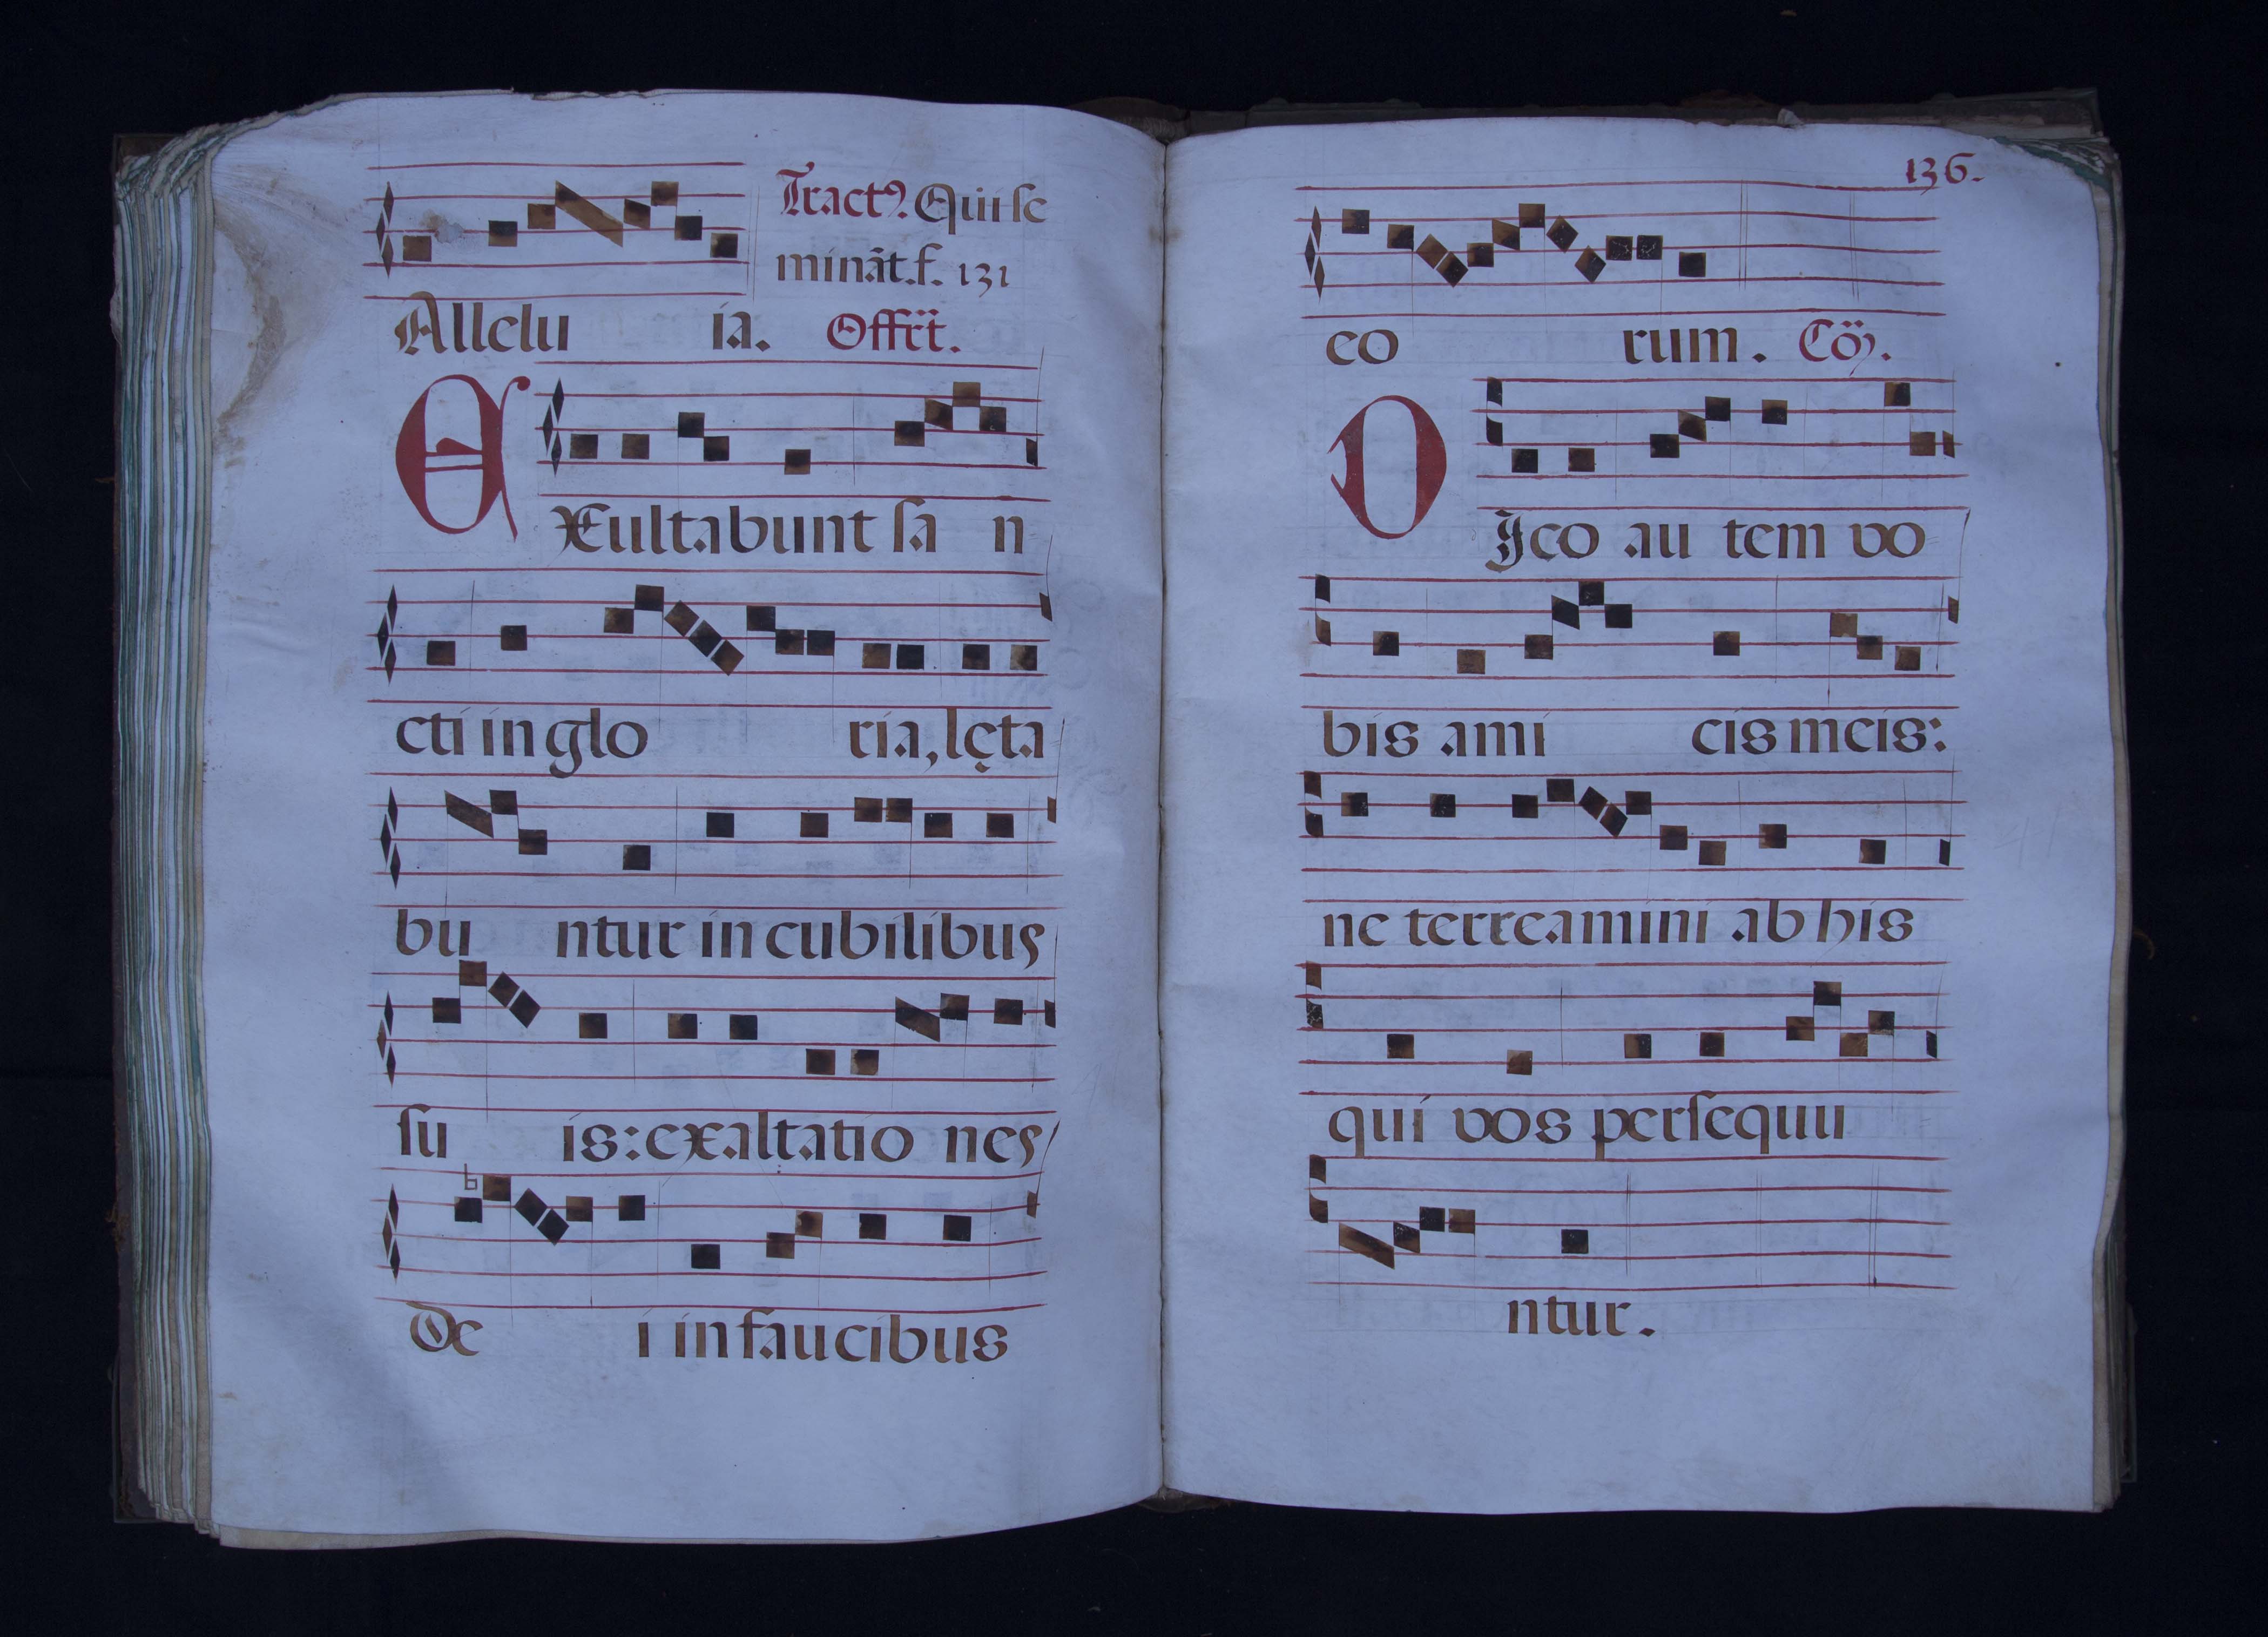 Tract9. Qui se
minãt. f. 131
Allelu ia. Offĩt.
EXultabunt sa n
cti in glo ria, lęta
bu ntur in cubilibus
su is: exaltatio nes
b
De i in faucibus
136.
eo rum. Cõ.
DIco au tem vo
bis ami cis meis:
ne terreamini ab his
qui vos persequu
ntur.